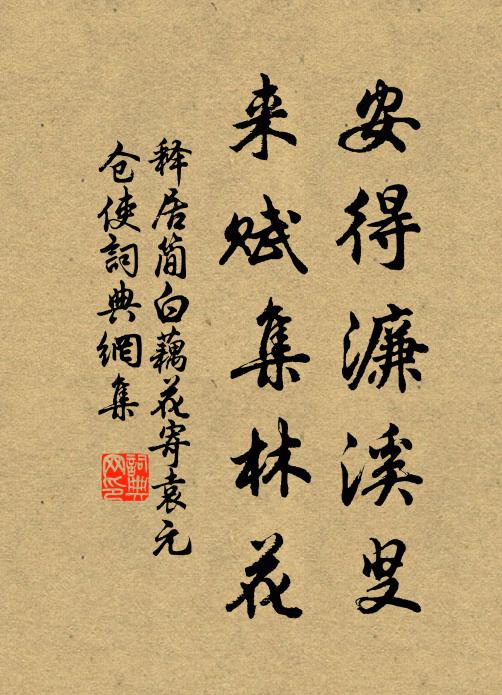 安得濂溪叟
来赋集林花
释居简白藕花寄袁元
仓使詞典網集
詞典网印